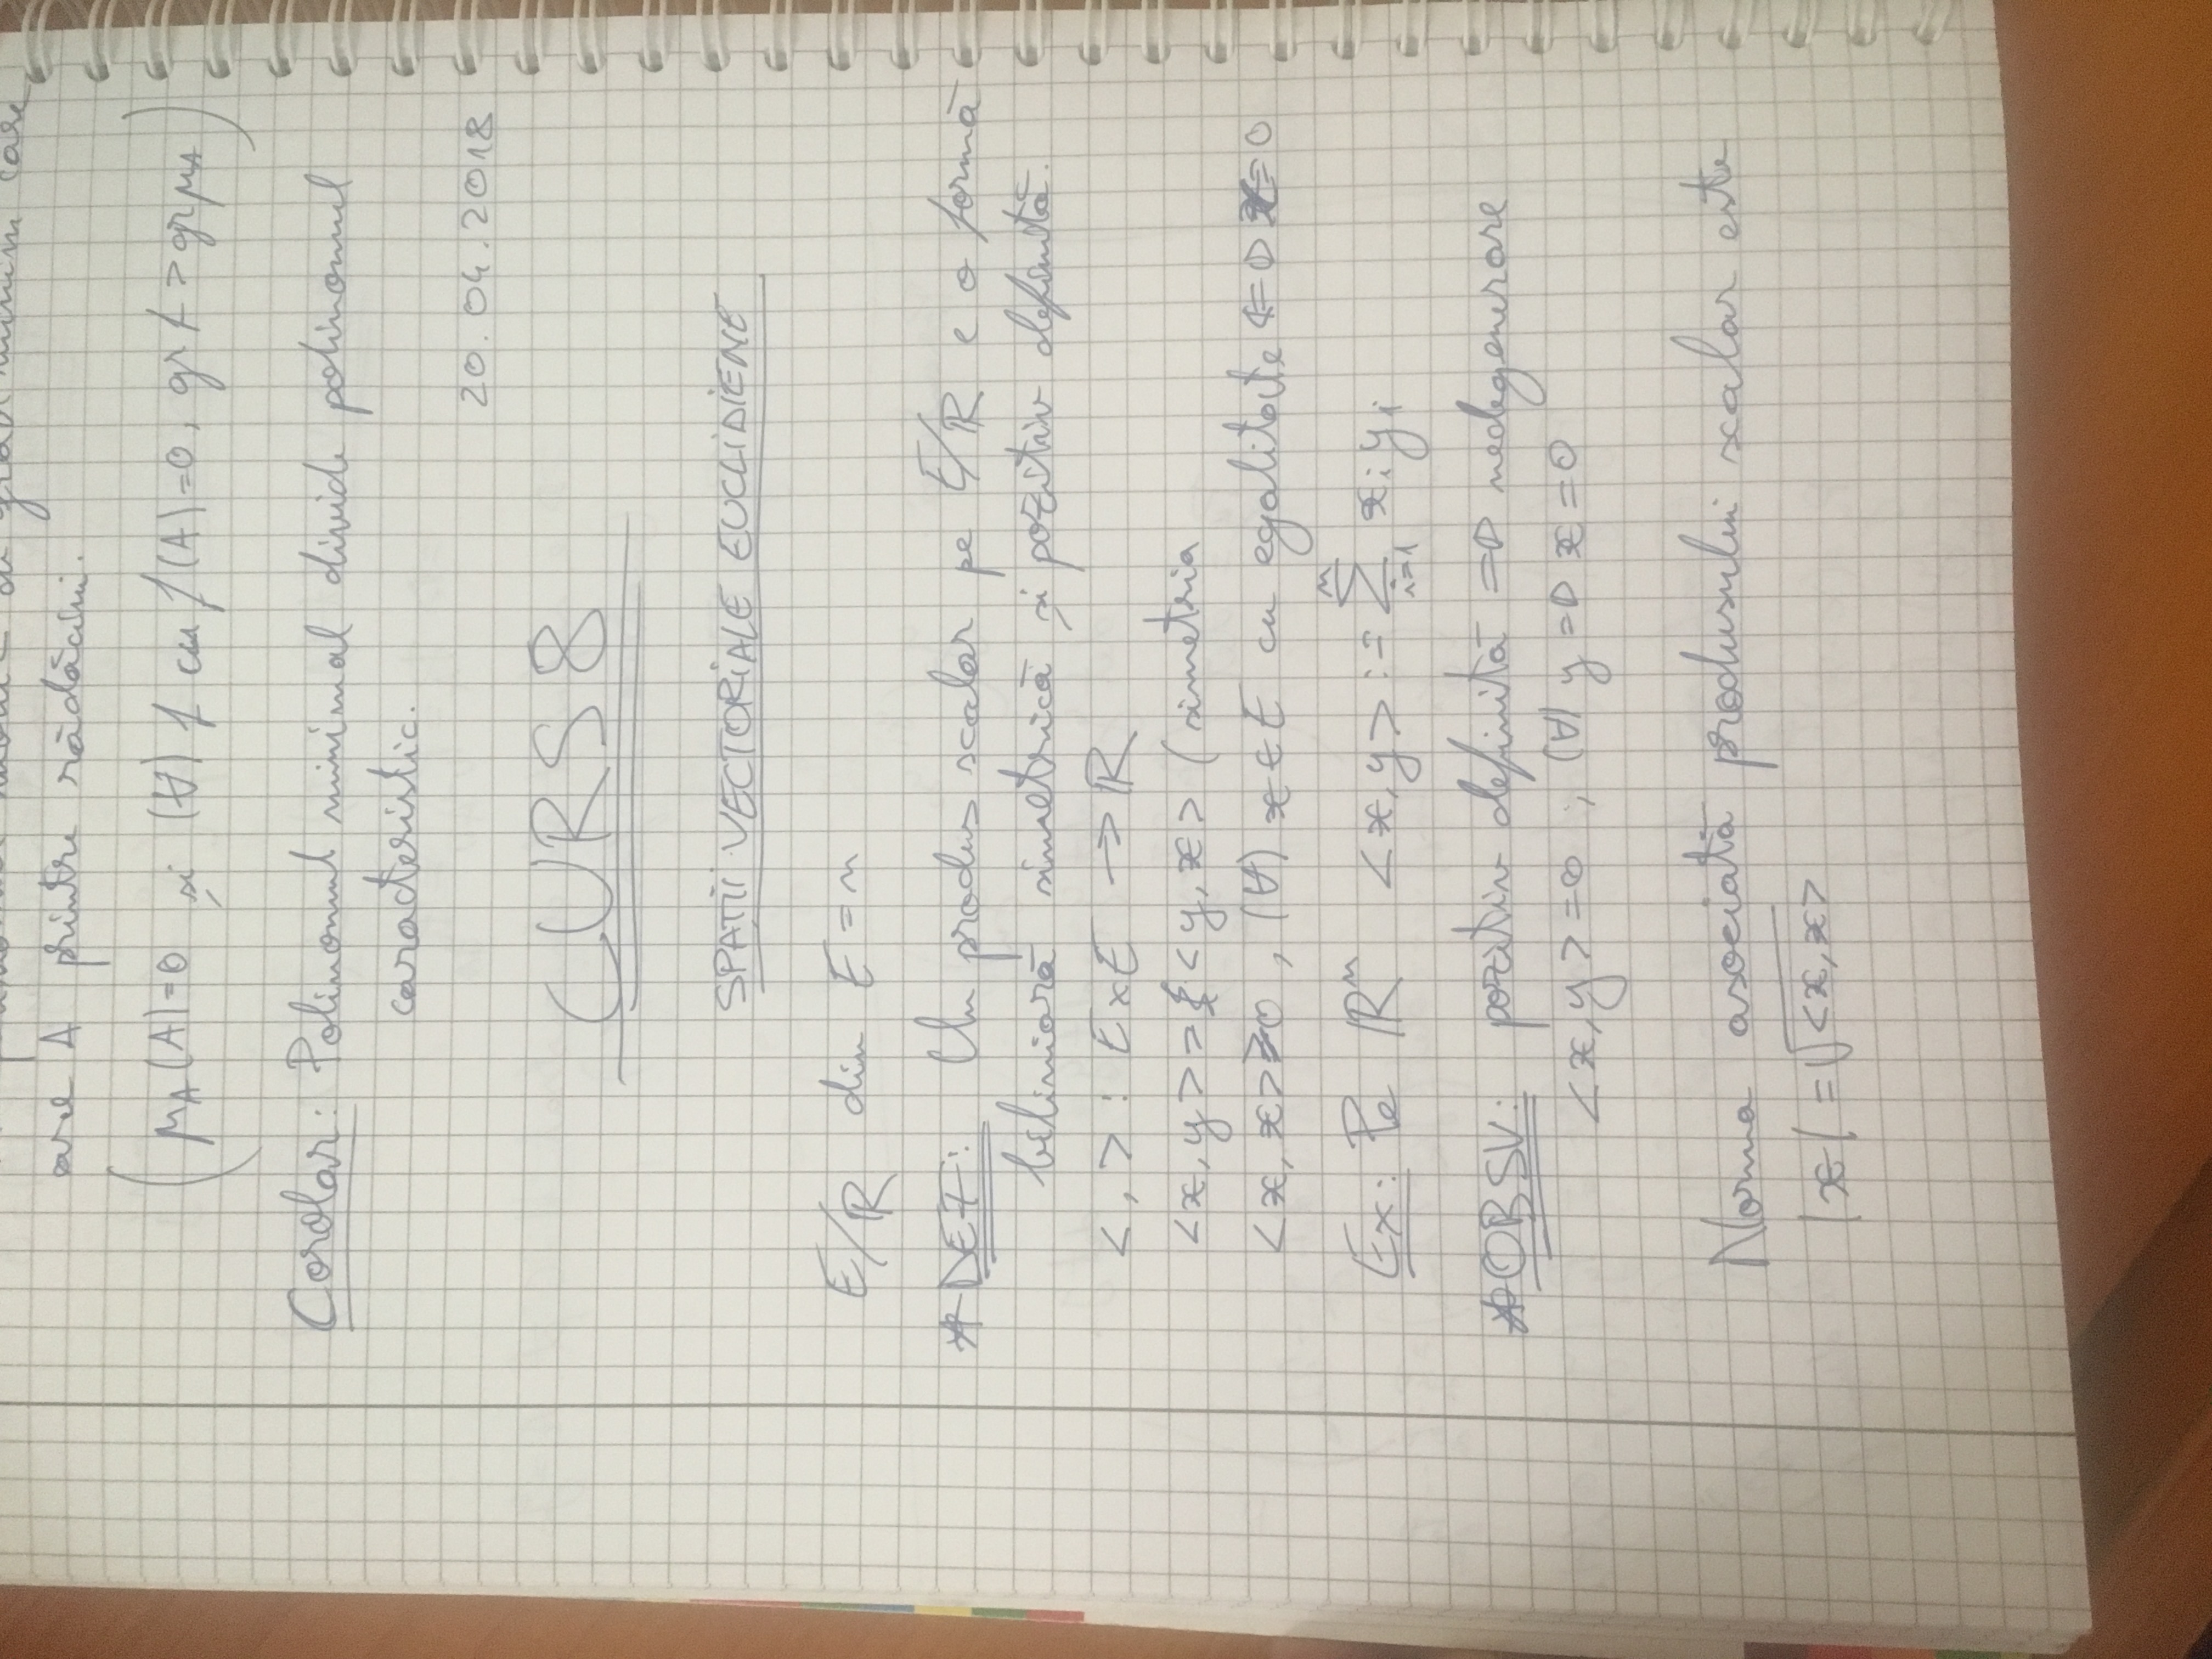 de grad minim care
are A printre rădăcini.
(μ_A(A)=0 și (∀) f cu f(A)=0, gr f > gr μ_A)
Corolar: Polinomul minimal divide polinomul
caracteristic.
20.04.2018
CURS 8
SPAȚII VECTORIALE EUCLIDIENE
E/ℝ dim E = n
* DEF: Un produs scalar pe E/ℝ e o formă
biliniară simetrică și pozitiv definită.
< , > : E×E → ℝ
<x,y> = <y,x> (simetria
<x,x> ≥ 0, (∀) x ∈ E cu egalitate ⇔ x=0
Ex: Pe ℝⁿ <x,y> := ∑_{i=1}^{n} x_i y_i
* OBSV: pozitiv definită ⇒ nedegenerare
<x,y> = 0 ; (∀) y ⇒ x = 0
Norma asociată produsului scalar este
|x| = √<x,x>